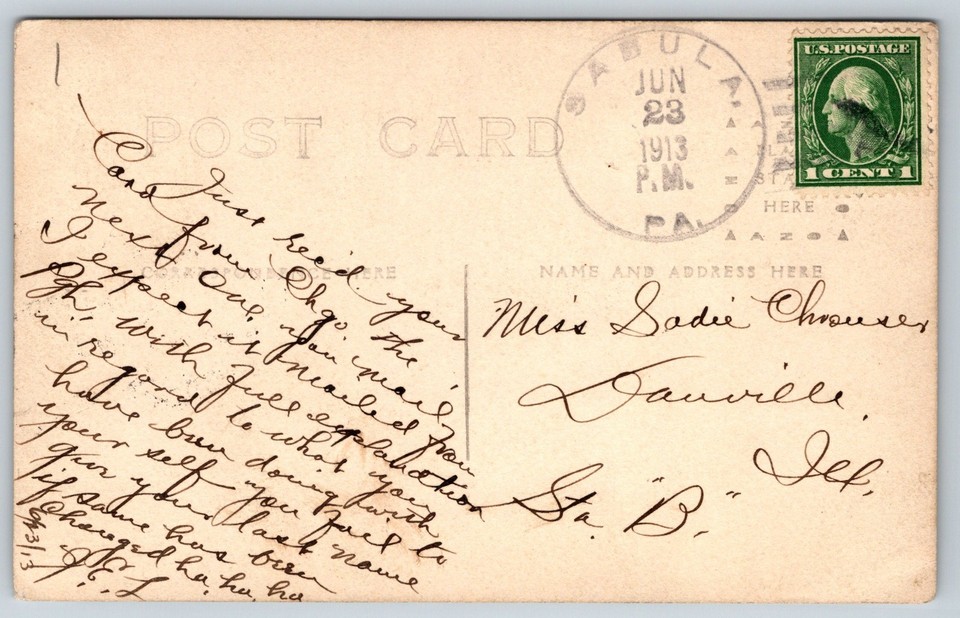 POST CARD
SABULA
JUN
23
1913
P.M.
PA.
U.S. POSTAGE
1 CENT 1
HERE
CORRESPONDENCE HERE
NAME AND ADDRESS HERE
Just rec'd your
Card from Chgo. the
next one, you mail
I expect it mailed from
Pgh, with full explanation
in regard to what you
have been doing with
your self. you fail to
give your last name
if same has been
Changed ha, ha, ha
J.E.L
6/23/13
Miss Sadie Chrouser
Danville,
Ill.
Sta. "B."